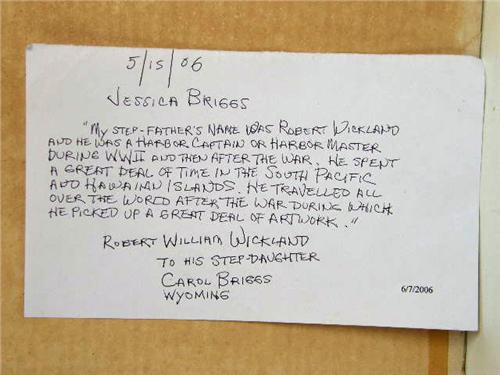 5/15/06
JESSICA BRIGGS
"MY STEP-FATHER'S NAME WAS ROBERT WICKLAND
AND HE WAS A HARBOR CAPTAIN OR HARBOR MASTER
DURING WWII AND THEN AFTER THE WAR. HE SPENT
A GREAT DEAL OF TIME IN THE SOUTH PACIFIC
AND HAWAIIAN ISLANDS. HE TRAVELLED ALL
OVER THE WORLD AFTER THE WAR DURING WHICH
HE PICKED UP A GREAT DEAL OF ARTWORK."
ROBERT WILLIAM WICKLAND
TO HIS STEP-DAUGHTER
CAROL BRIGGS
WYOMING
6/7/2006